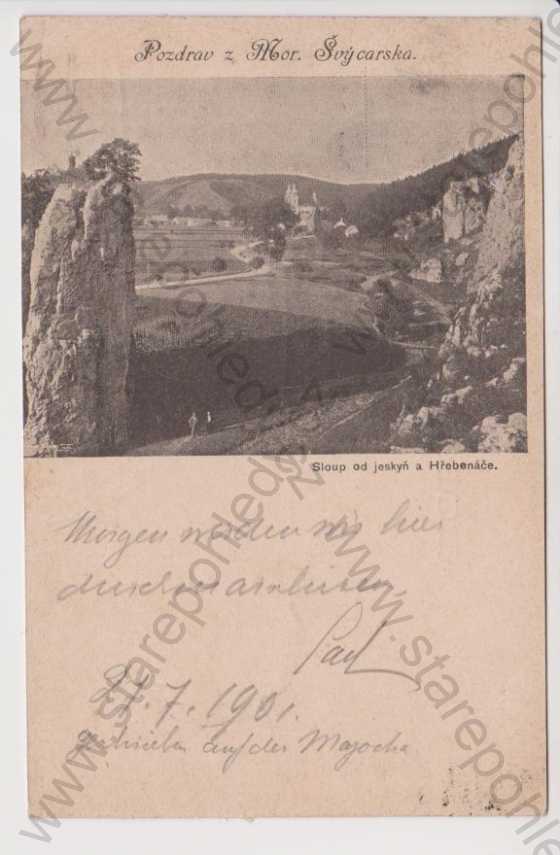 Pozdrav z Mor. Švýcarska.
Sloup od jeskyň a Hřebenáče.
Morgen werden wir hier
durchmarschieren.
Paul
27.7.1901.
Geschrieben auf der Mazocha
www.starepohledy.cz